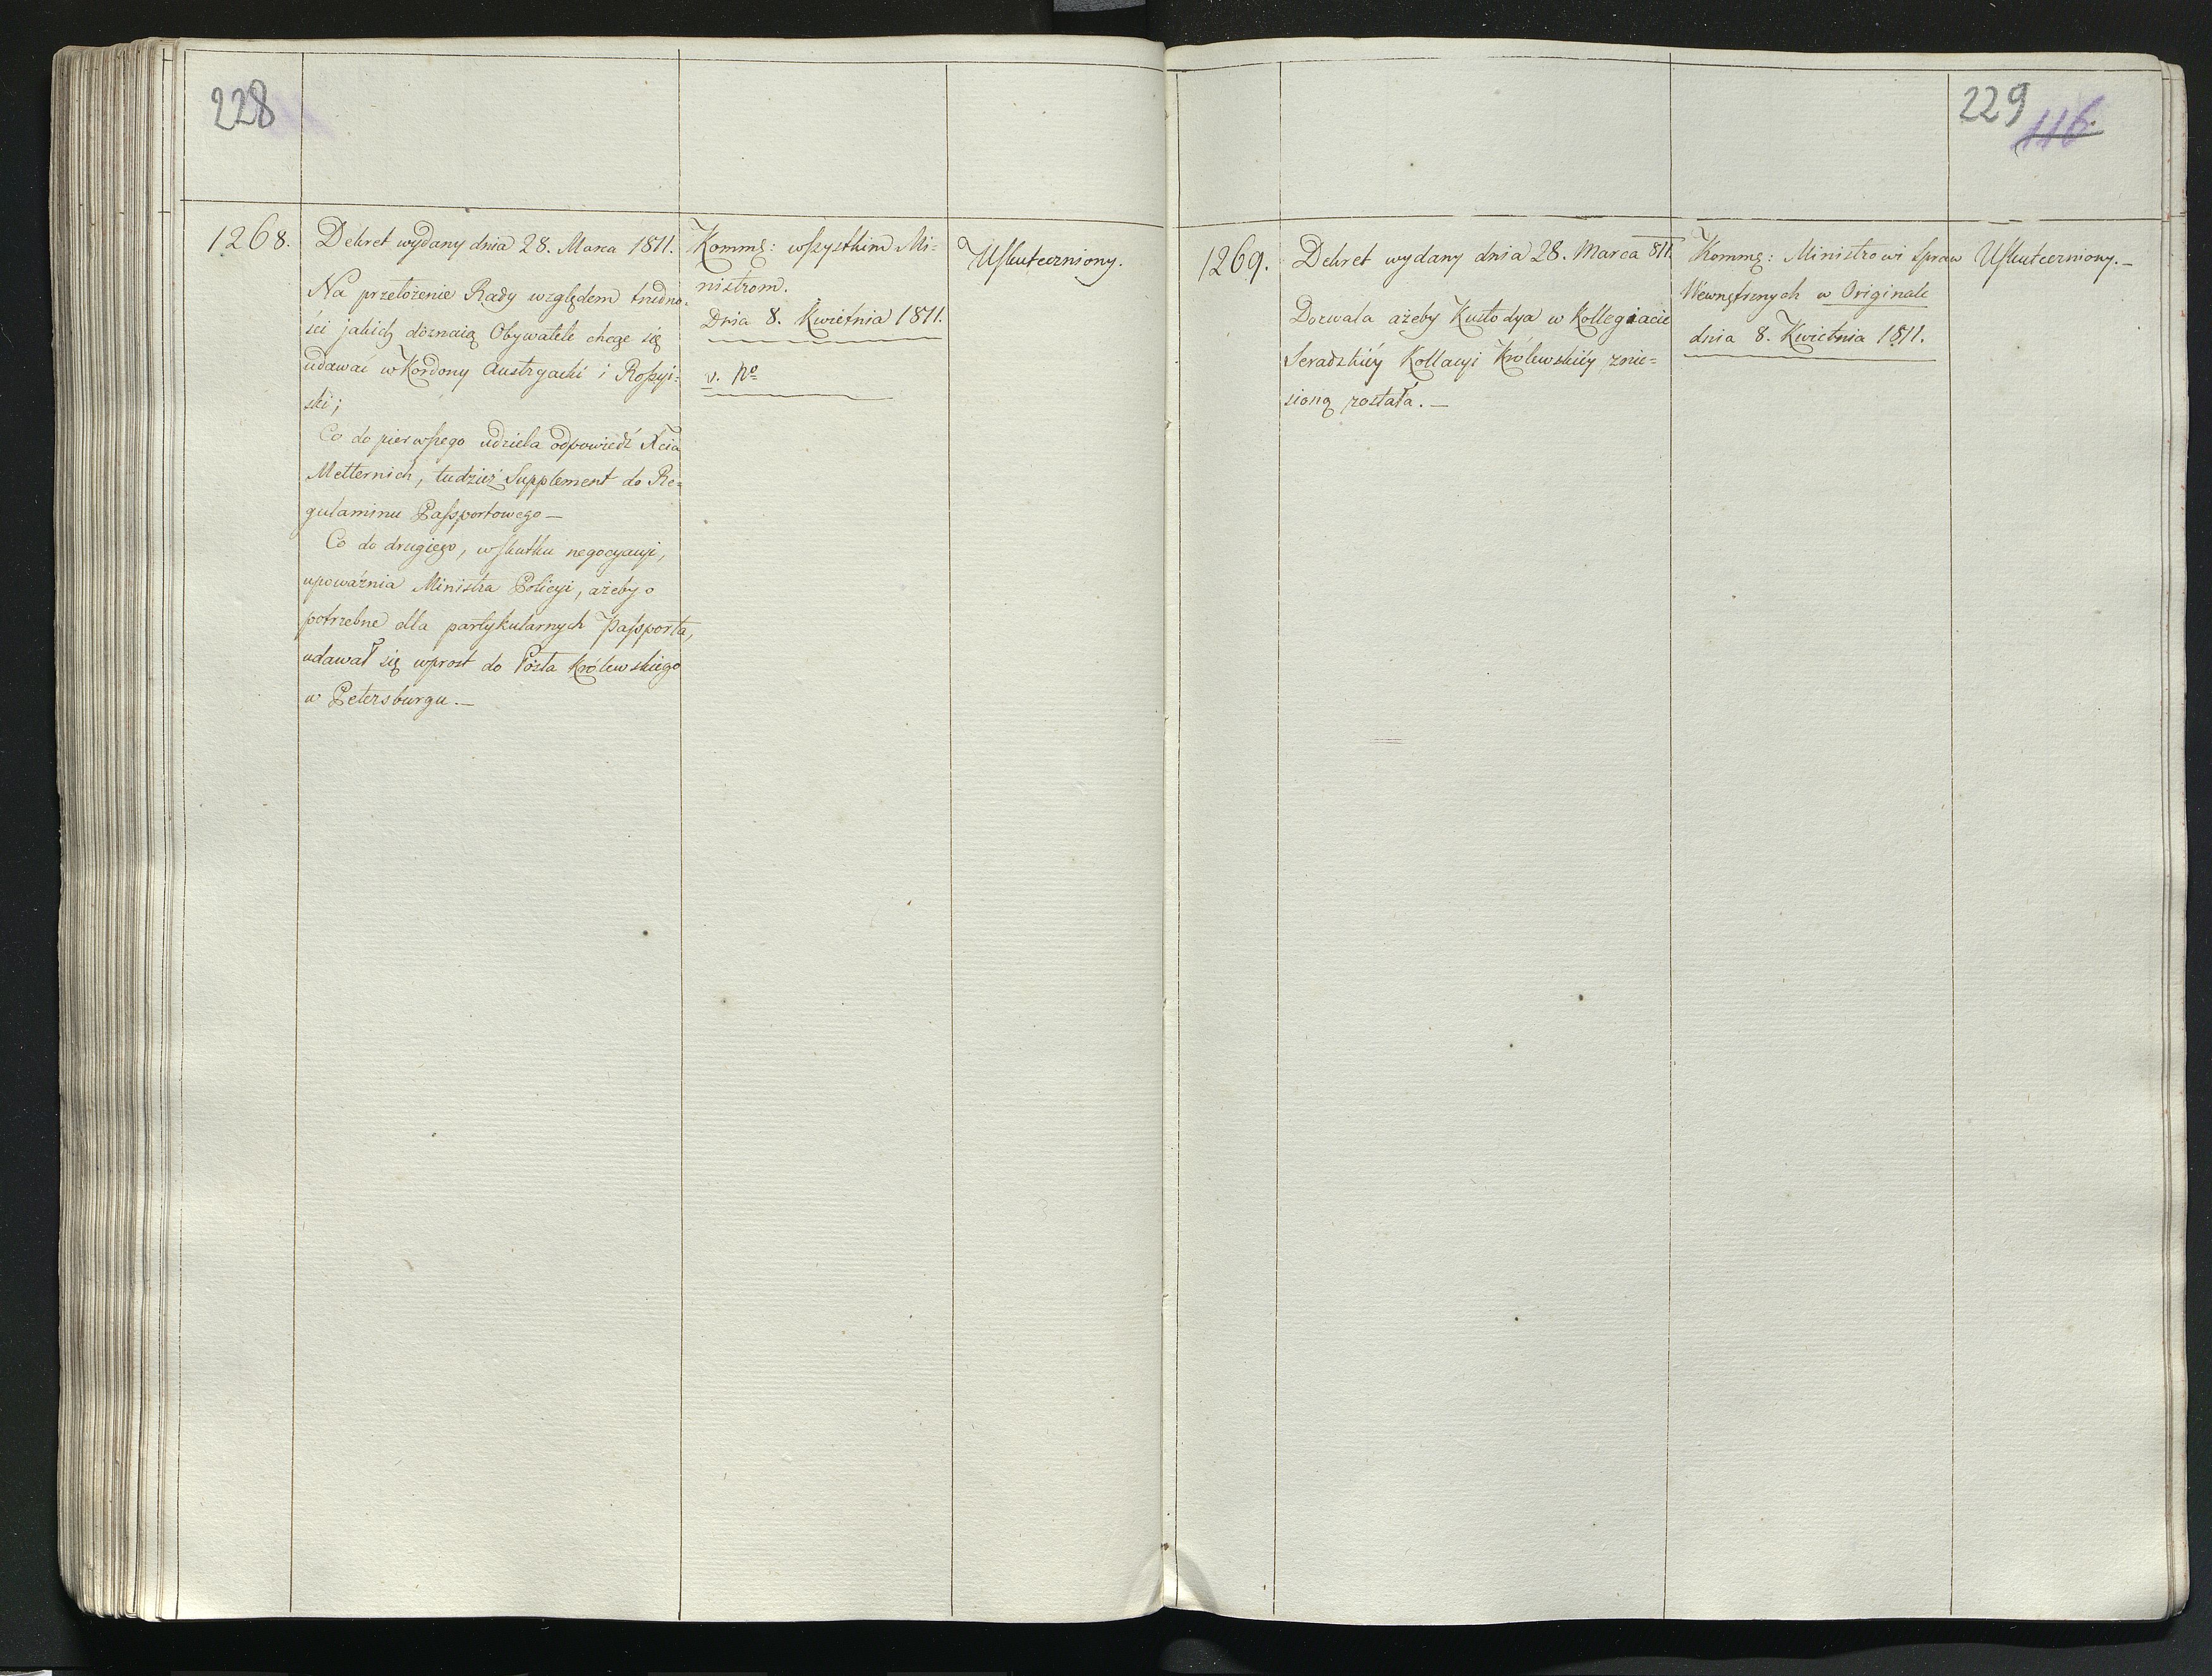 228
1268.
Dekret wydany dnia 28. Marca 1811.
Na przełożenie Rady względem trudno-
ści jakich doznaią Obywatele chcąc się
udawać w Kordony Austryacki i Roſsyi-
ski;
Co do pierwſzego udziela odpowiedź Xcia
Metternich, tudzież Supplement do Re-
gulaminu Paſsportowego —
Co do drugiego, w ſkutku negocyacyi,
upoważnia Ministra Policyi, ażeby o
potrzebne dla partykularnych Paſsporta,
udawał się wprost do Posła Królewskiego
w Petersburgu. —
Kommę: wſzystkim Mi-
nistrom.
Dnia 8. Kwietnia 1811.
v. No
Uſkuteczniony.
229
116.
1269.
Dekret wydany dnia 28. Marca 811.
Dozwala ażeby Kustodya w Kollegiacie
Seradzkiéy Kollacyi Królewskiéy znie-
sioną została. —
Kommę: Ministrowi Spraw
Wewnętrznych w Originale
dnia 8. Kwietnia 1811.
Uſkuteczniony. —